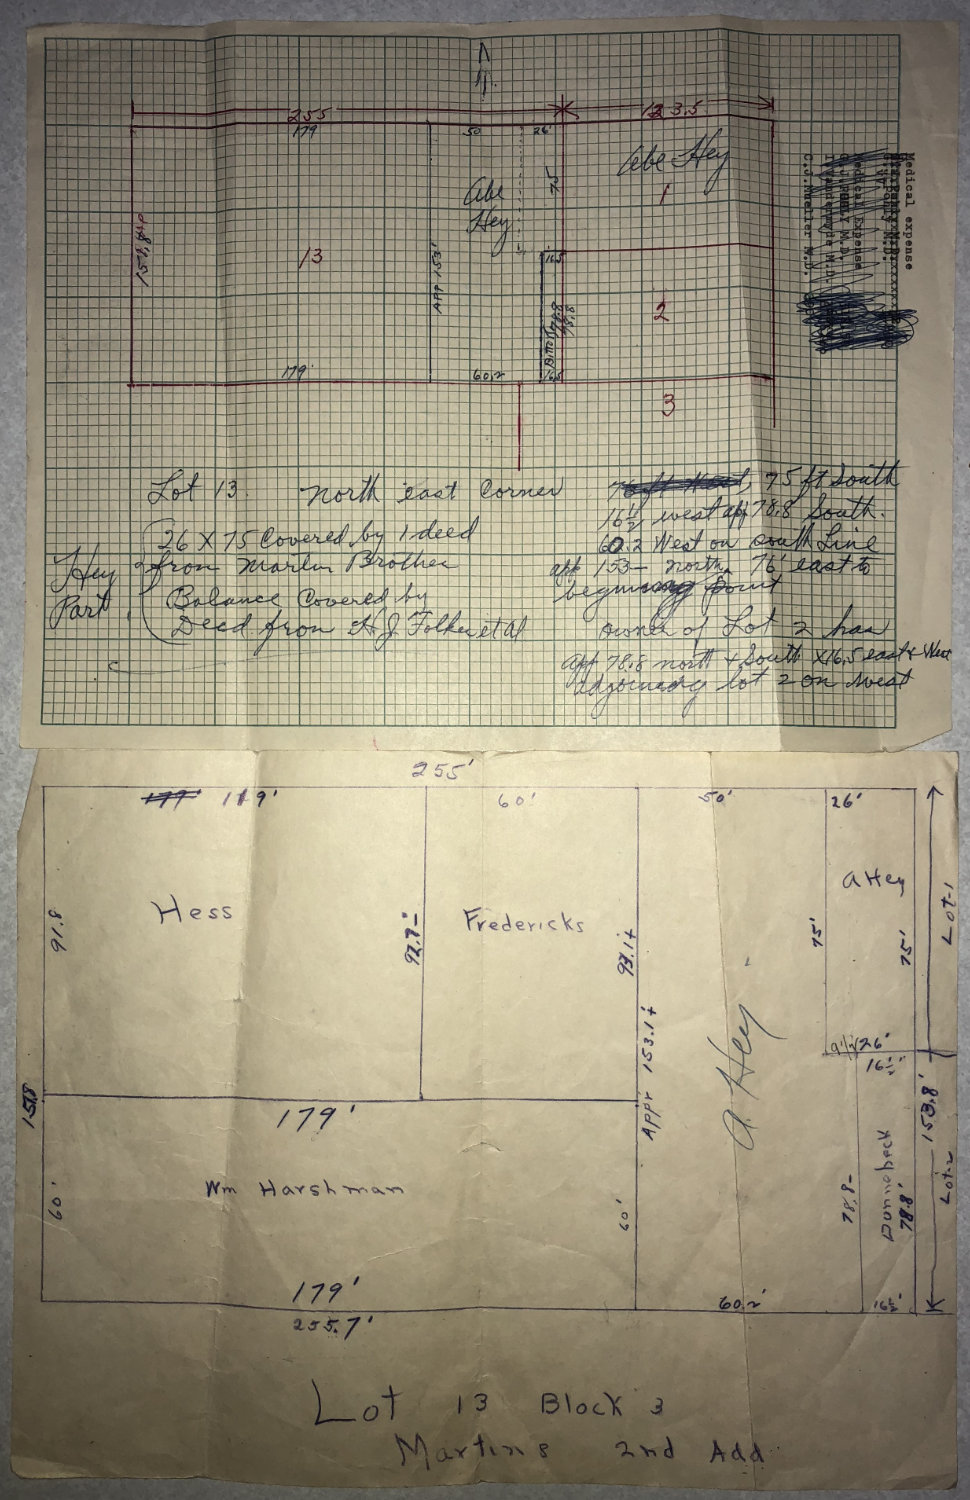 N.
255
123.5
179
50
26'
Abe Hey
75
1
Abe
Hey
151.8
13
APP 153'
16.5
78.8
2
179'
60.2
16.5
3
Medical expense
Medical Expense
C.J.Mueller M.D.
Lot 13. North east Corner
75 ft South
16 1/2 west app 78.8 South.
60.2 West on south Line
app 153- north. 76' east to
beginning point
Hey
Part
26 X 75 Covered by 1 deed
from Martin Brother
Balance Covered by
Deed from H J Folker et al
owner of Lot 2 has
app 78.8 north + South X 16.5 east + West
adjoining lot 2 on west
255'
177' 119'
60'
50'
26'
Hess
Fredericks
A Hey
91.8
92.7-
93.1+
75'
75'
Lot-1
A Hey
26'
16 1/2'
151.8
179'
Appr 153.1+
153.8'
Wm Harshman
60'
60'
78.8-
Dannebeck
78.8'
Lot-2
179'
60.2'
16 1/2'
255.7'
Lot 13 Block 3
Martins 2nd Add